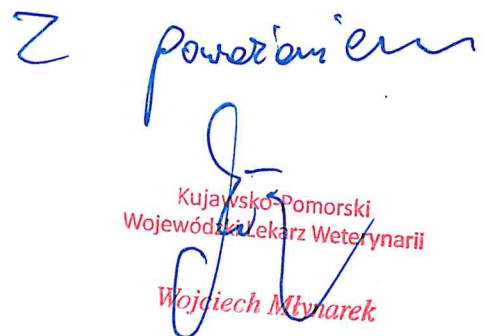 Z poważaniem
Kujawsko-Pomorski
Wojewódzki Lekarz Weterynarii
Wojciech Młynarek